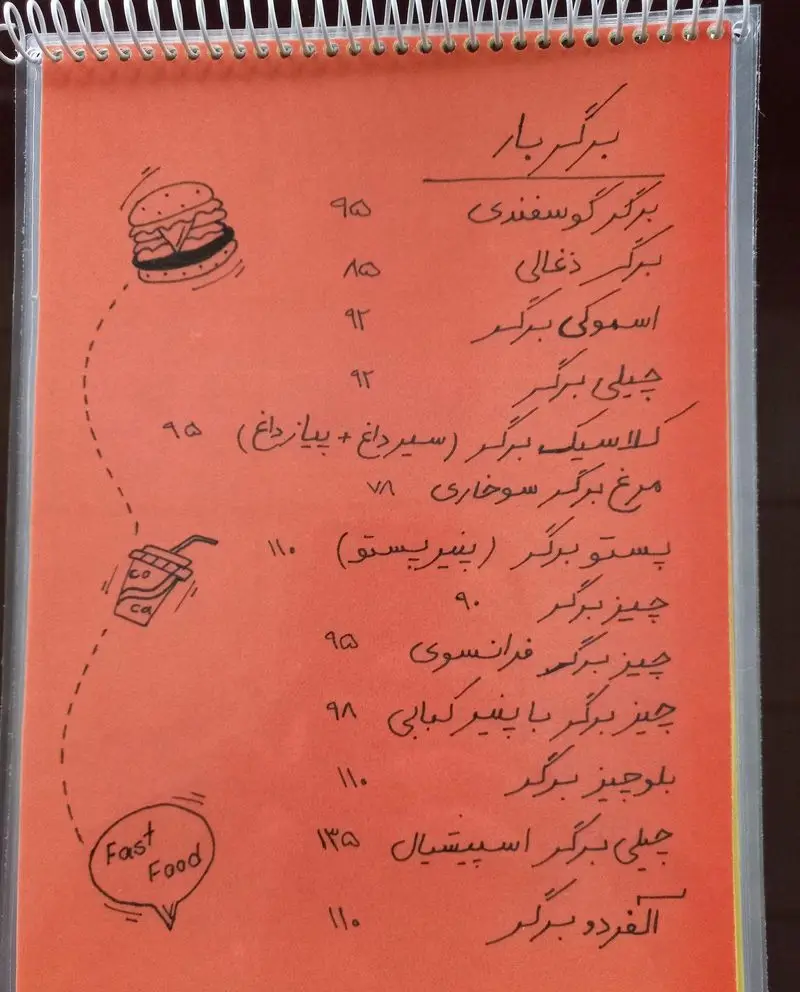 برگر بار
برگر گوسفندی ۹۵
برگر ذغالی ۸۵
اسموکی برگر ۹۲
چیلی برگر ۹۲
کلاسیک برگر (سیر داغ + پیاز داغ) ۹۵
مرغ برگر سوخاری ۷۸
پستو برگر (پنیر پستو) ۱۱۰
چیز برگر ۹۰
چیز برگر فرانسوی ۹۵
چیز برگر با پنیر کبابی ۹۸
بلوچیز برگر ۱۱۰
چیلی برگر اسپیشیال ۱۳۵
آلفردو برگر ۱۱۰
co
ca
Fast
Food